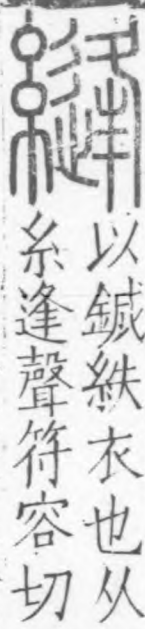 縫
以鍼紩衣也从
糸逢聲符容切